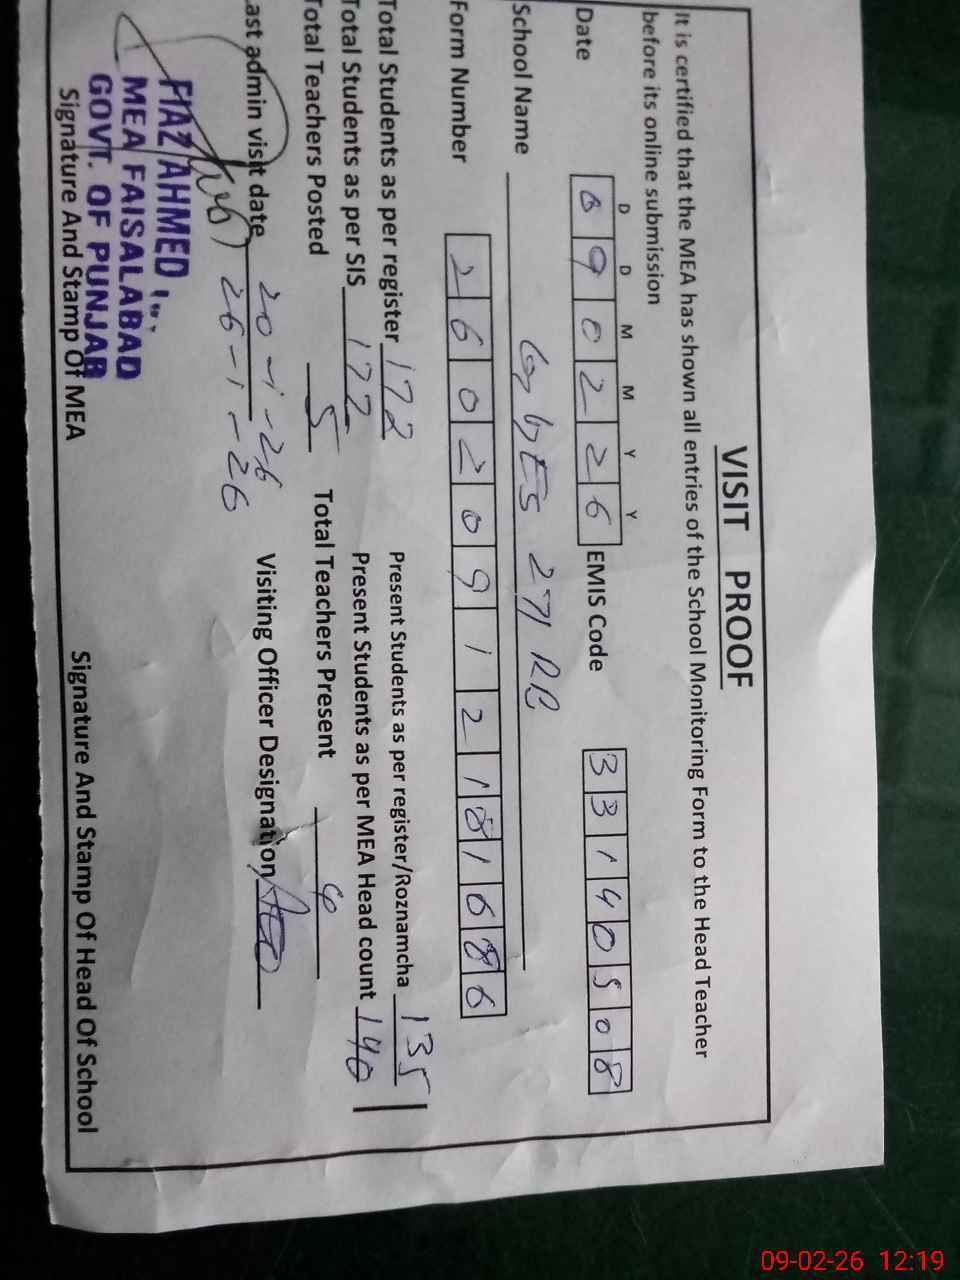 VISIT PROOF
It is certified that the MEA has shown all entries of the School Monitoring Form to the Head Teacher
before its online submission
D D M M Y Y
Date 090226 EMIS Code 33140508
School Name GgbES 271 RB
Form Number 26020912181686
Total Students as per register 172 Present Students as per register/Roznamcha 135
Total Students as per SIS 172 Present Students as per MEA Head count 140
Total Teachers Posted 5 Total Teachers Present 4
Last admin visit date 20-1-26 Visiting Officer Designation AEO
26-1-26
FIAZ AHMED
MEA FAISALABAD
GOVT. OF PUNJAB
Signature And Stamp Of MEA Signature And Stamp Of Head Of School
09-02-26 12:19